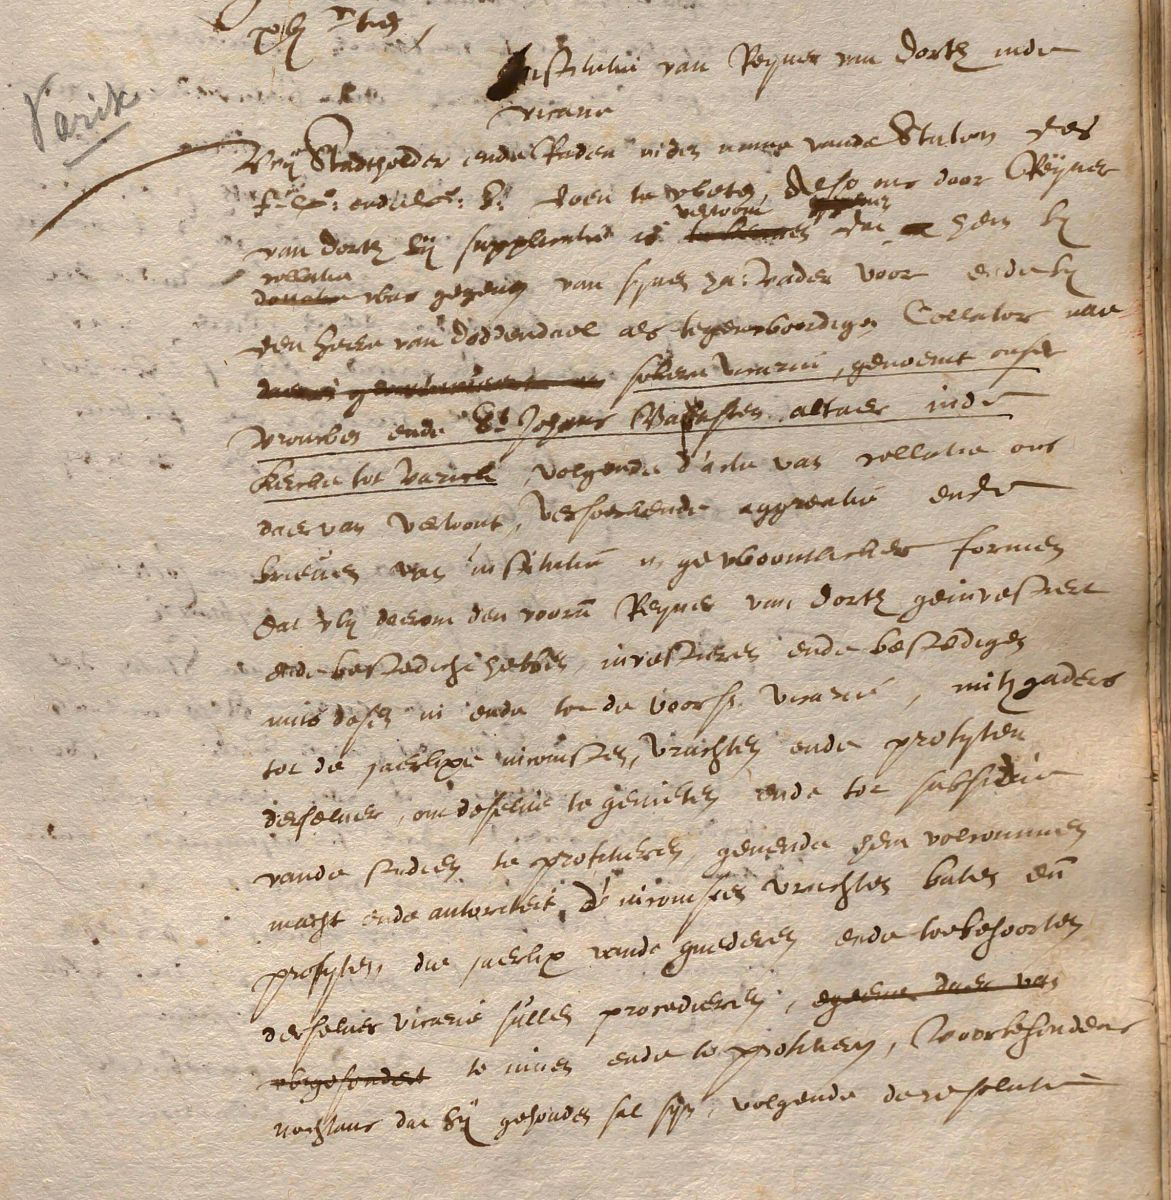 Varik
Institutie van Reyner van Dorth inde
vicarie
Wij Stadtholder ende Raden in den name vande Staten des
doen te weten, Also ons door Reyner
van Dorth bij supplicatie is verthoont dat hem bij
collatie
was gegeven van synen za: Vader voor ende bij
den Heere van Doddendael als tegenwoordigen Collator nae
sekere vicarie, genoemt onser
Vrouwen ende St Johans Baptisten altaer inde
kercke tot Varick, volgende d'acte van collatie ons
daer van verthoont, versoekende aggreatie ende
brieven van institutie in gewoontlicker formen
dat wij daerom den voorn Reyner van Dorth geinvestiert
ende bestedicht hebben, investieren ende bestedigen
mits desen in ende tot de voors. vicarie, mitzgaders
tot de jaerlixe incomsten, vruchten ende profyten
derselver, om deselve te genieten ende tot subsidie
vande studien te profiteren, gevende hem volcommen
macht ende autoriteit, d'incomsten vruchten baten en̄
profyten, die jaerlix vande goederen ende toebehoorten
derselver vicarie sullen procedieren, egeene daer van
uitgesondert te innen ende te profiteren, Voorbehoudens
nochtans dat hij gehouden sal syn, volgende de resolutie